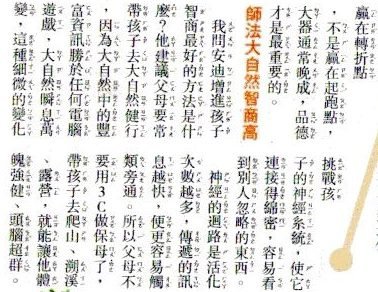 贏在轉折點
，不是贏在起跑點，
大器通常晚成，品德
才是最重要的。
師法大自然智商高
我問安迪增進孩子
智商最好的方法是什
麼？他建議父母要常
帶孩子去大自然健行
，因為大自然中的豐
富資訊勝於任何電腦
遊戲，大自然瞬息萬
變，這種細微的變化
挑戰孩
子的神經系統，使它
連接得綿密，容易看
到別人忽略的東西。
神經的迴路是活化
次數越多，傳遞的訊
息越快，便更容易觸
類旁通。所以父母不
要用3C做保母了，
帶孩子去爬山、溯溪
、露營，就能讓他體
魄強健、頭腦超群。